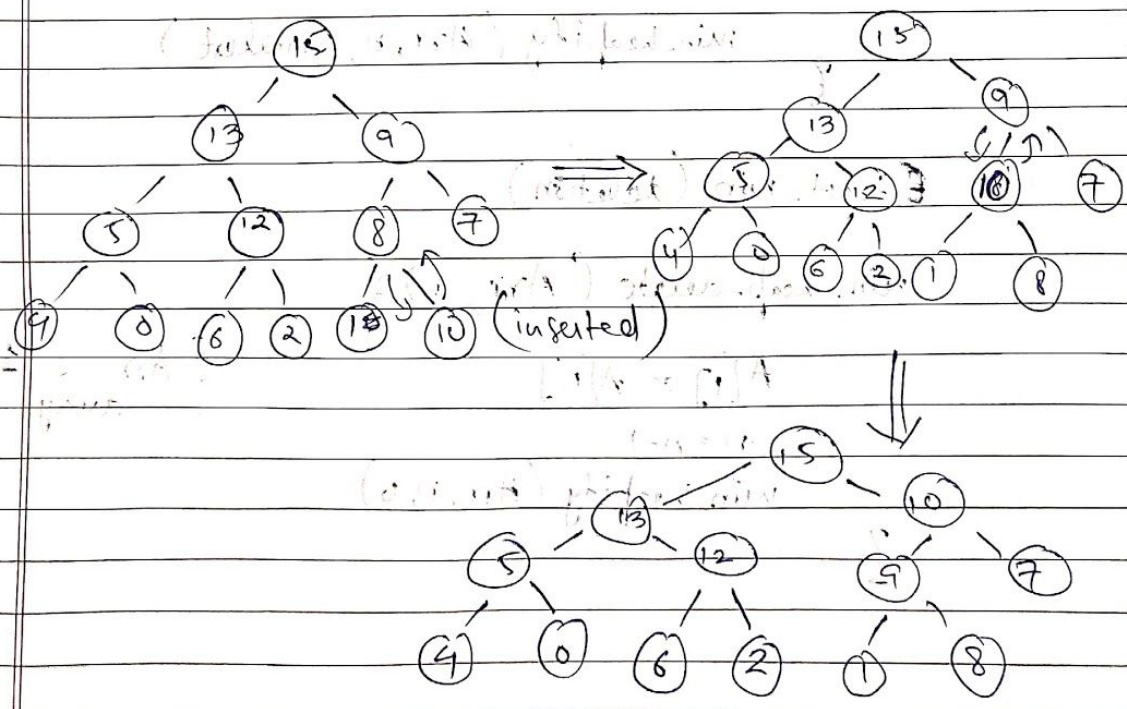 15
13 9
5 12 8 7
4 0 6 2 1 10 (inserted)
15
13 9
5 12 10 7
4 0 6 2 1 8
15
13 10
5 12 9 7
4 0 6 2 1 8